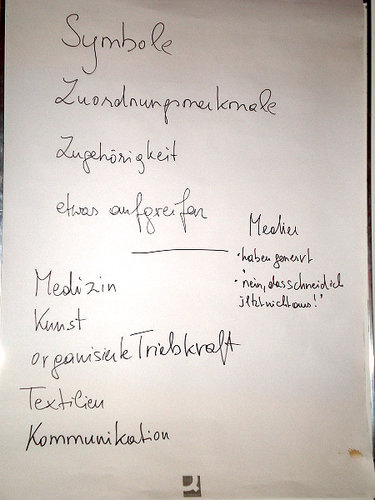 Symbole
Zuordnungsmerkmale
Zugehörigkeit
etwas aufgreifen
Medien
• haben genervt
• "nein, das schneid ich
jetzt nicht aus!"
Medizin
Kunst
organisierte Triebkraft
Textilien
Kommunikation